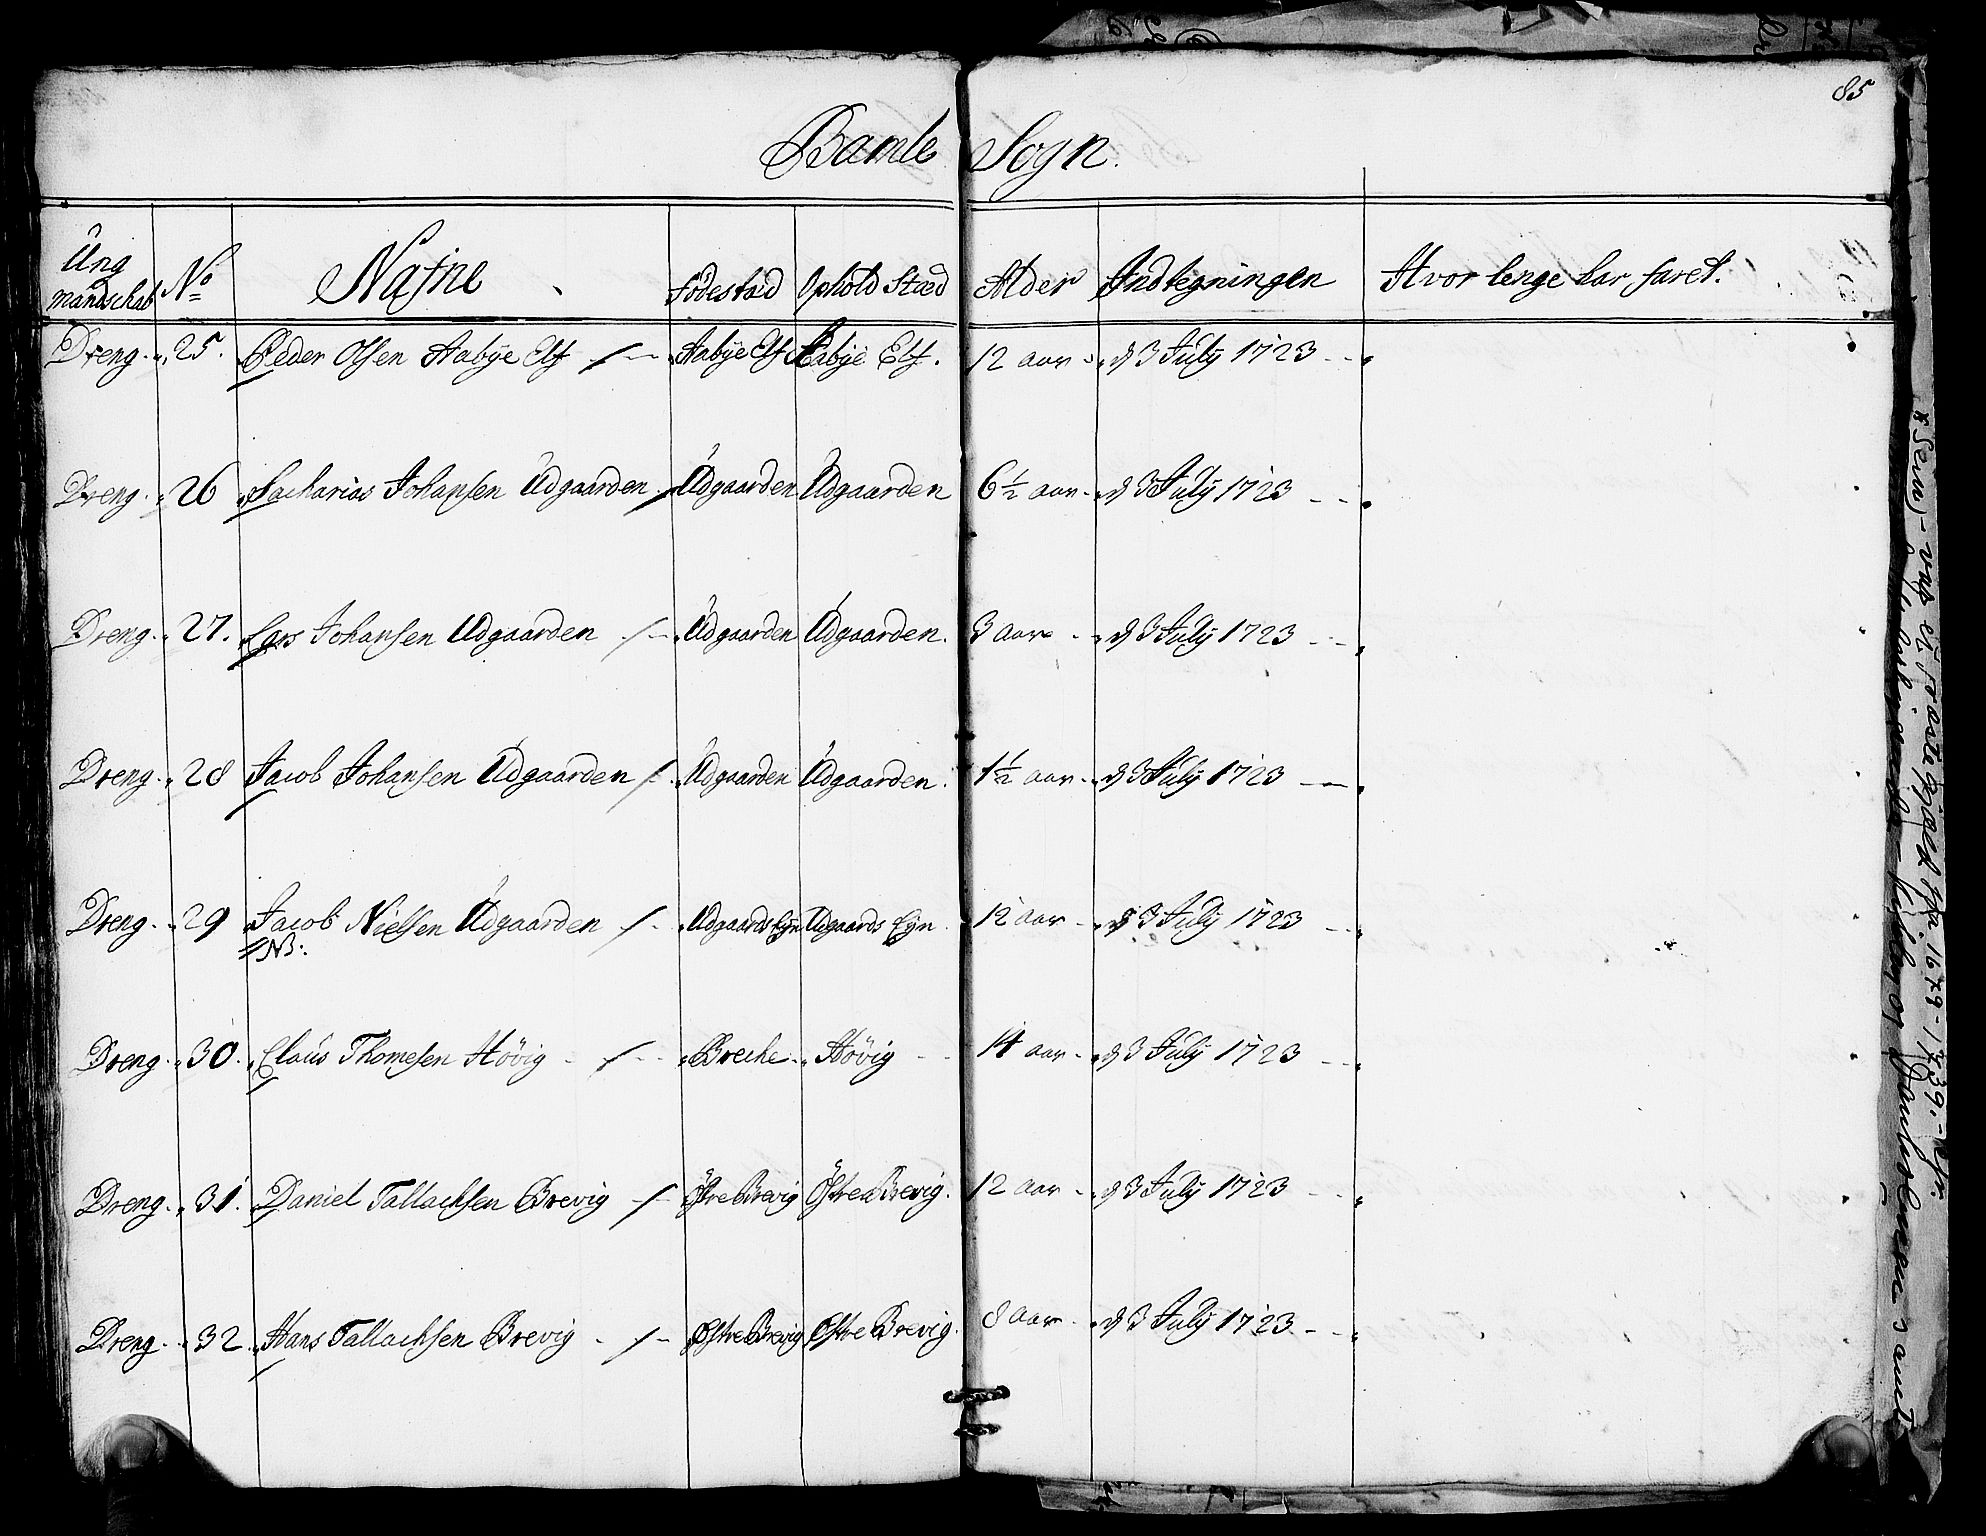 85
Bamle Sogn.
Ung mandschab No Nafne födestæd Ophold Stæd Alder Indtegningen Hvor lenge har faret.
Dreng 25. Peder Olsen Aabÿe Elf Aabÿe Elf Aabÿe Elf. 12 aar d 3 Julÿ 1723
Dreng 26 Sacharias Johansen Udgaarden Udgaarden Udgaarden 6½ aar d 3 Julÿ 1723
Dreng 27. Lars Johansen Udgaarden Udgaarden Udgaarden. 3 aar d 3 Julÿ 1723
Dreng 28 Jacob Johansen Udgaarden Udgaarden Udgaarden. 1½ aar d 3 Julÿ 1723
Dreng 29 Jacob Nielsen Udgaarden Udgaards Eÿn Udgaards Eÿn 12 aar d 3 Julÿ 1723
NB:
Dreng 30. Claus Thomesen Hövig Breche Hövig 14 aar d 3 Julÿ 1723
Dreng 31. Daniel Tallachsen Brevig Östre Brevig Östre Brevig. 12 aar d 3 Julÿ 1723
Dreng 32 Hans Tallachsen Brevig Östre Brevig Östre Brevig. 8 aar d 3 Julÿ 1723